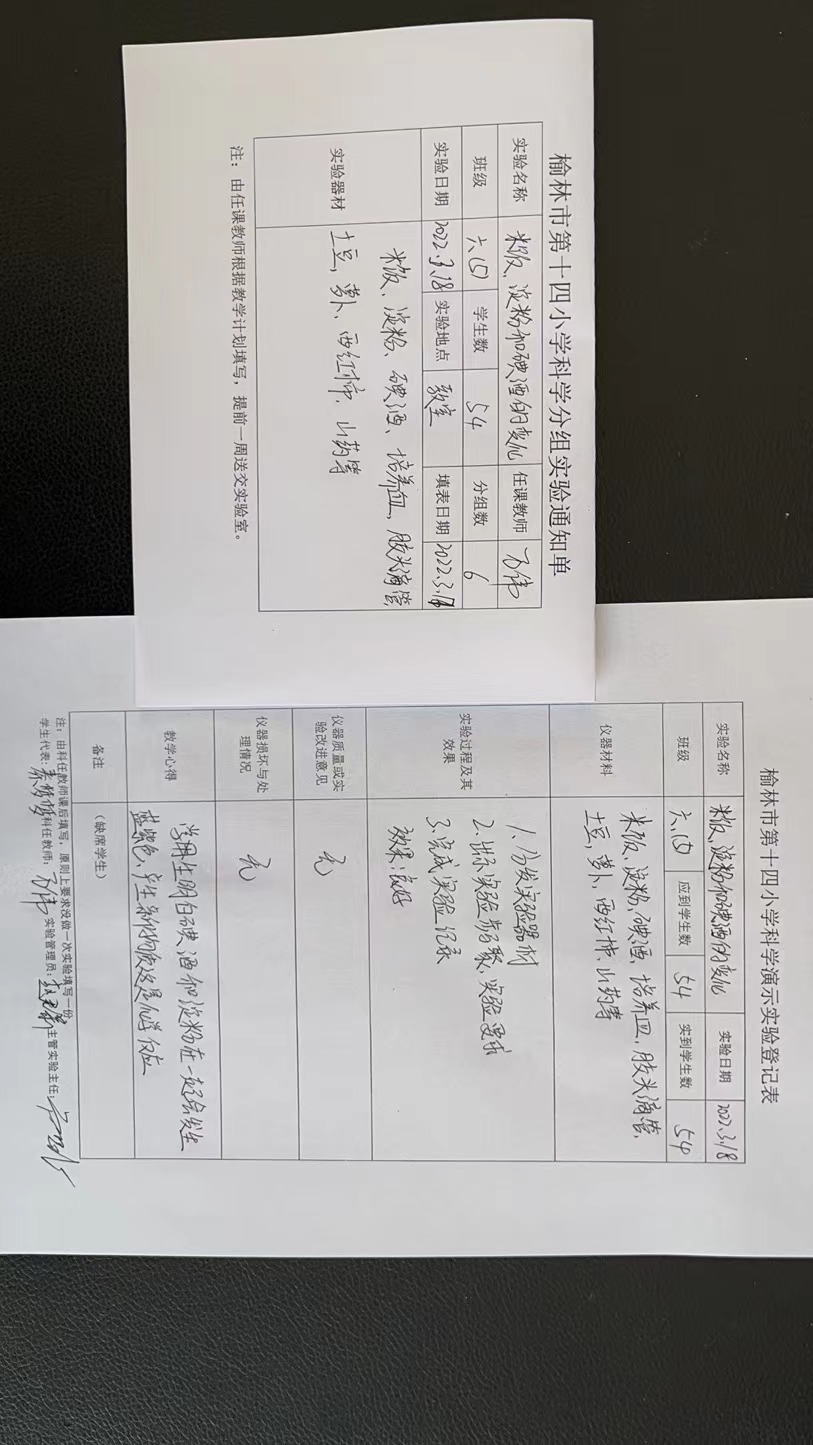 榆林市第十四小学科学分组实验通知单
实验名称 米饭、淀粉和碘酒的变化 任课教师
班级 学生数 54 分组数 6
实验日期 2022.3.18 实验地点 教室 填表日期
实验器材 米饭、淀粉、碘酒、培养皿、胶头滴管
土豆,萝卜、西红柿、山药等
注:由任课教师根据教学计划填写,提前一周送交实验室。
榆林市第十四小学科学演示实验登记表
实验名称 米饭、淀粉和碘酒的变化 实验日期 2022.3.18
班级 应到学生数 54 实到学生数 54
仪器材料 米饭、淀粉、碘酒、培养皿、胶头滴管、
土豆,萝卜、西红柿、山药等
实验过程及其效果 1、分发实验器材
2、出示实验步聚、实验要求
3、完成实验记录
效果:良好
仪器质量或实验改进意见 无
仪器损坏与处理情况 无
教学心得 碘酒和淀粉在一起会发生
蓝紫色、产生新物质这是化学反应
备注 (缺席学生)
注:由科任教师课后填写,原则上要求没做一次实验填写一份
学生代表: 科任教师: 实验管理员: 主管实验主任: